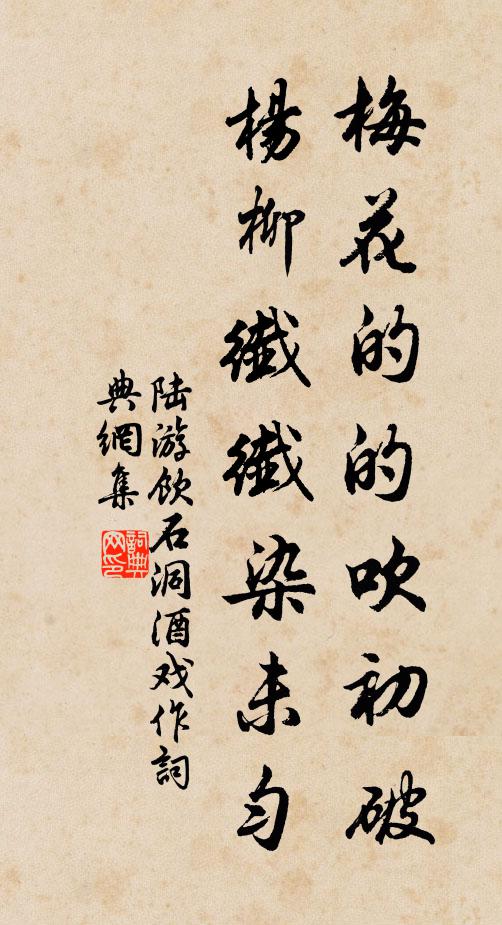 梅花的的吹初破
楊柳纖纖染未勻
陆游飲石洞酒戏作詞
典網集
詞典
网印